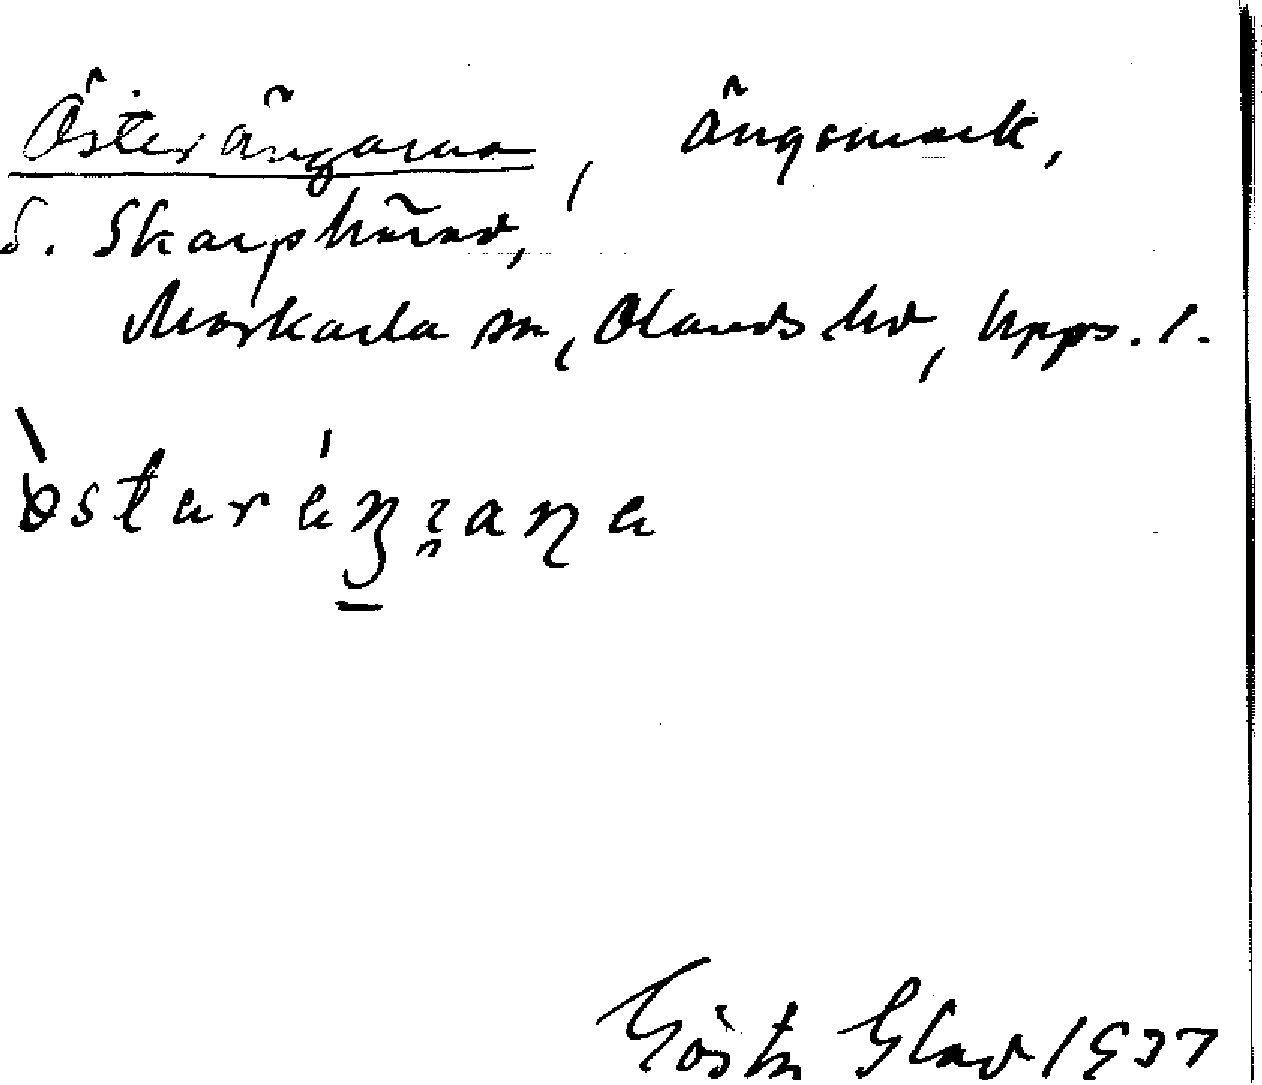 Österängarna, ängsmark,
S. Skarphärad,
Morkarla sn, Olands hd, Upps. l.
Gösta Glad 1937